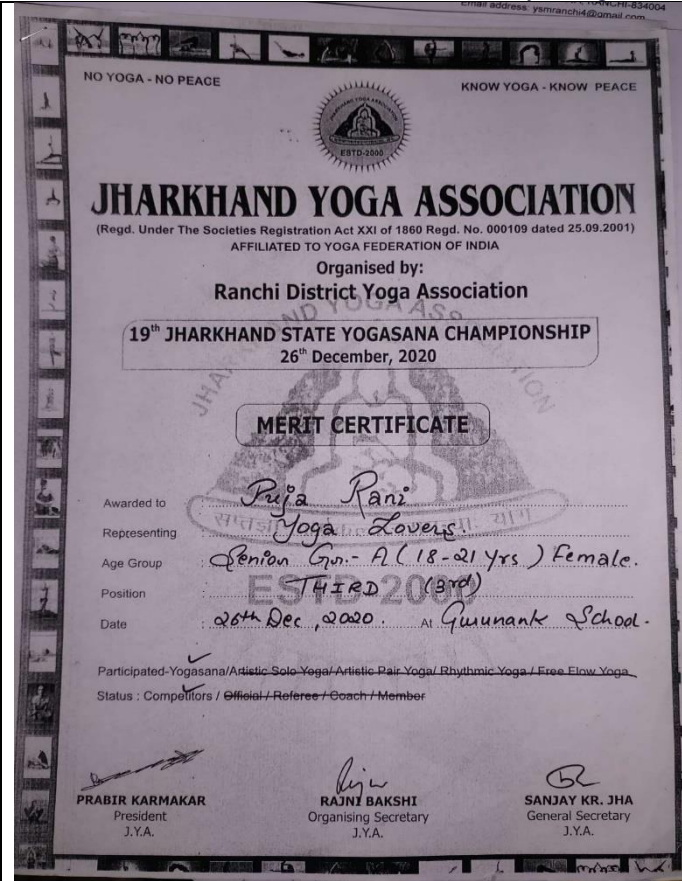 RANCHI-834004
Email address: ysmranchi4@gmail.com
NO YOGA - NO PEACE
KNOW YOGA - KNOW PEACE
JHARKHAND YOGA ASSOCIATION
ESTD-2000
JHARKHAND YOGA ASSOCIATION
(Regd. Under The Societies Registration Act XXI of 1860 Regd. No. 000109 dated 25.09.2001)
AFFILIATED TO YOGA FEDERATION OF INDIA
Organised by:
Ranchi District Yoga Association
19th JHARKHAND STATE YOGASANA CHAMPIONSHIP
26th December, 2020
JHARKHAND YOGA ASSOCIATION
MERIT CERTIFICATE
Awarded to Puja Rani
Representing Yoga Lovers
योग
Age Group : Senion Gr.- A (18-21 Yrs) Female.
ESTD-2000
Position : THIRD (3rd)
Date : 26th Dec, 2020. At Gurunank School.
Participated-Yogasana/Artistic Solo Yoga/Artistic Pair Yoga/ Rhythmic Yoga / Free Flow Yoga
Status : Competitors / Official / Referee / Coach / Member
PRABIR KARMAKAR
President
J.Y.A.
RAJNI BAKSHI
Organising Secretary
J.Y.A.
SANJAY KR. JHA
General Secretary
J.Y.A.